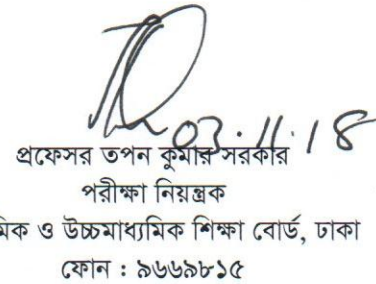 03.11.18
প্রফেসর তপন কুমার সরকার
পরীক্ষা নিয়ন্ত্রক
মিক ও উচ্চমাধ্যমিক শিক্ষা বোর্ড, ঢাকা
ফোন : ৯৬৬৯৮১৫